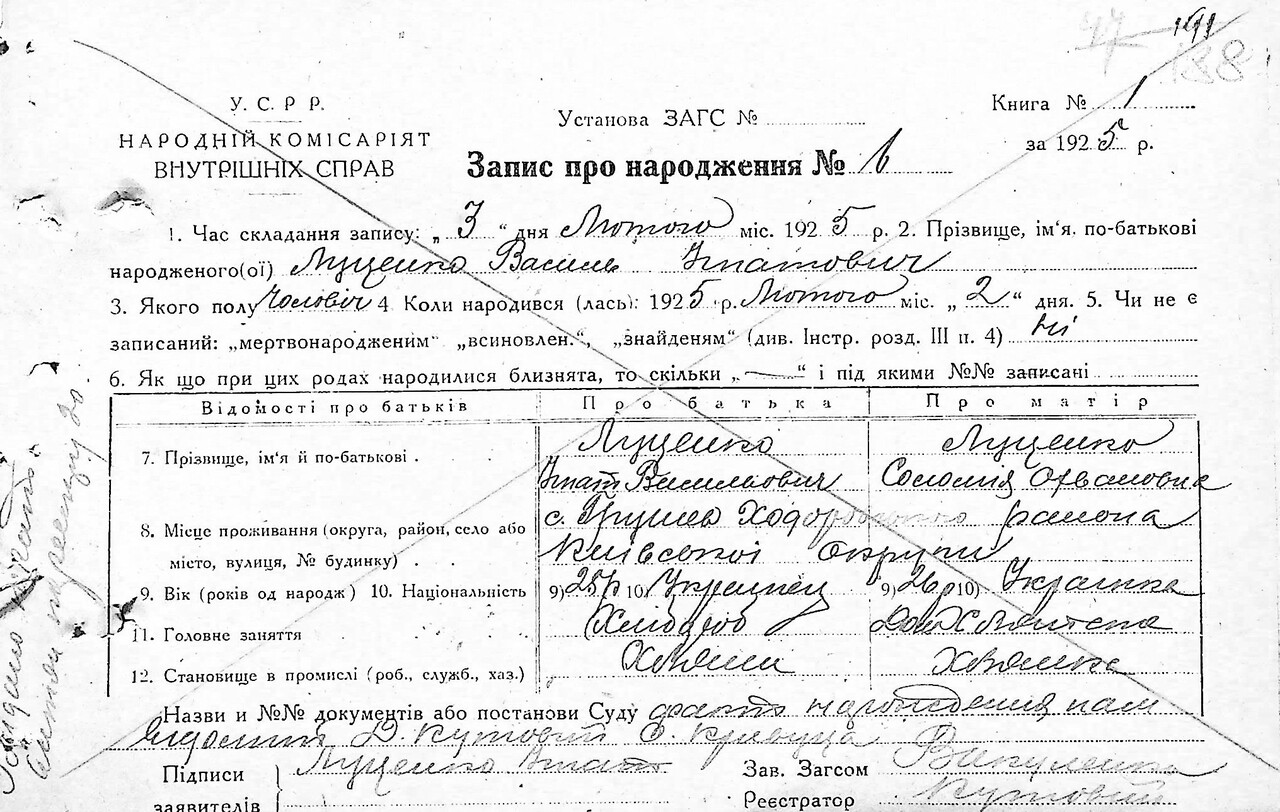 191
47
188
У. С. Р Р.
НАРОДНІЙ КОМІСАРІЯТ
ВНУТРІШНІХ СПРАВ
Установа ЗАГС №
Книга № 1
за 1925 р.
Запис про народження № 6
1. Час складання запису: „ 3 “ дня Лютого міс. 1925 р. 2. Прізвище, ім'я, по-батькові
народженого(ої) Луценко Василь Гнатович
3. Якого полу Чоловіч 4 Коли народився (лась): 1925 р. Лютого міс. „ 2 “ дня. 5. Чи не є
записаний: „мертвонародженим“ „всиновлен.“, „знайденям“ (див. Інстр. розд. III п. 4) ні
6. Як що при цих родах народилися близнята, то скільки „ — “ і під якими №№ записані
Відомості про батьків Про батька Про матір
7. Прізвище, ім'я й по-батькові . Луценко Гнат Васильович Луценко Соломія
8. Місце проживання (округа, район, село або с. Грушев Ходоровського района
місто, вулиця, № будинку) . . Київської округи
9. Вік (років од народж) 10. Національність 9) 25 р 10) Українец 9) 26 р 10) Українка
11. Головне заняття Хлібороб
12. Становище в промислі (роб., служб., хаз.)
Назви и №№ документів або постанови Суду факт народження нам
Підписи Луценко Гнат Зав. Загсом Вакуленко
заявителів Реєстратор Кутовий